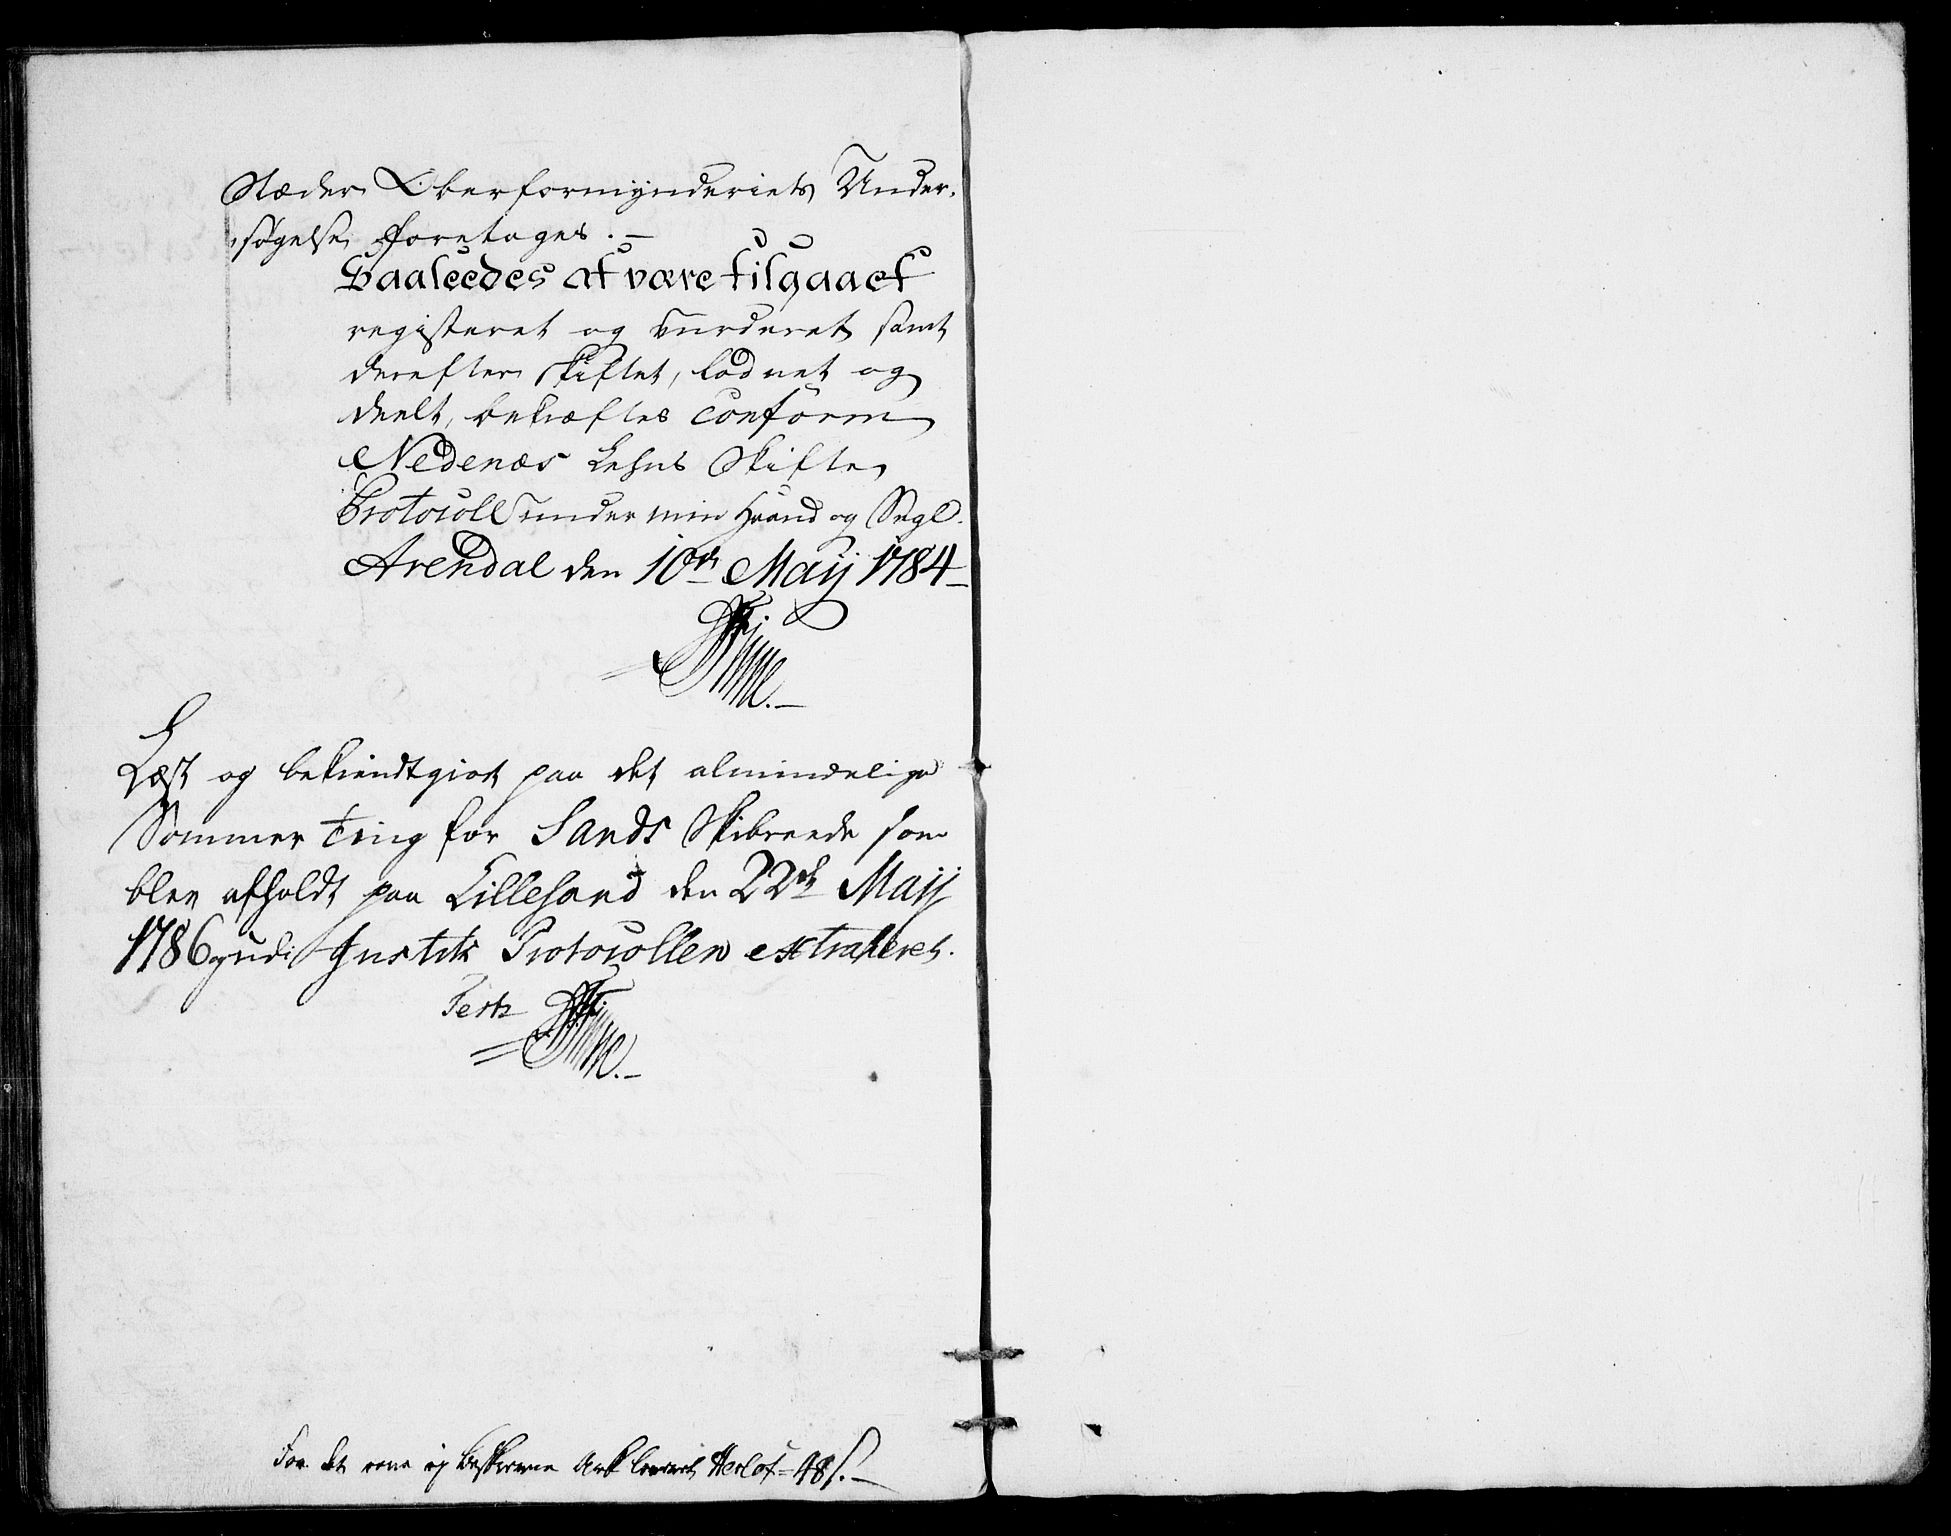 Stæder Oberformÿnderiets Under-
søgelse foretages. —
Saaleedes at være tilgaaet
registeret og vurderet samt
derefter skiftet, lodnet og
deelt, bekræftes conform
Nedenæs Lehns Skifte
Protocoll under min Haand og Segl.
Arendal den 10de Maij 1784 —
Læst og bekiendtgiort paa det almindelige
Sommer Ting for Sands Skibreede som
blev afholdt paa Lillesand den 22de Maij
1786 og udi Justits Protocollen extraheret.
Test
For det eene og beskrevne Ark leveret Herlof = 48 s. —